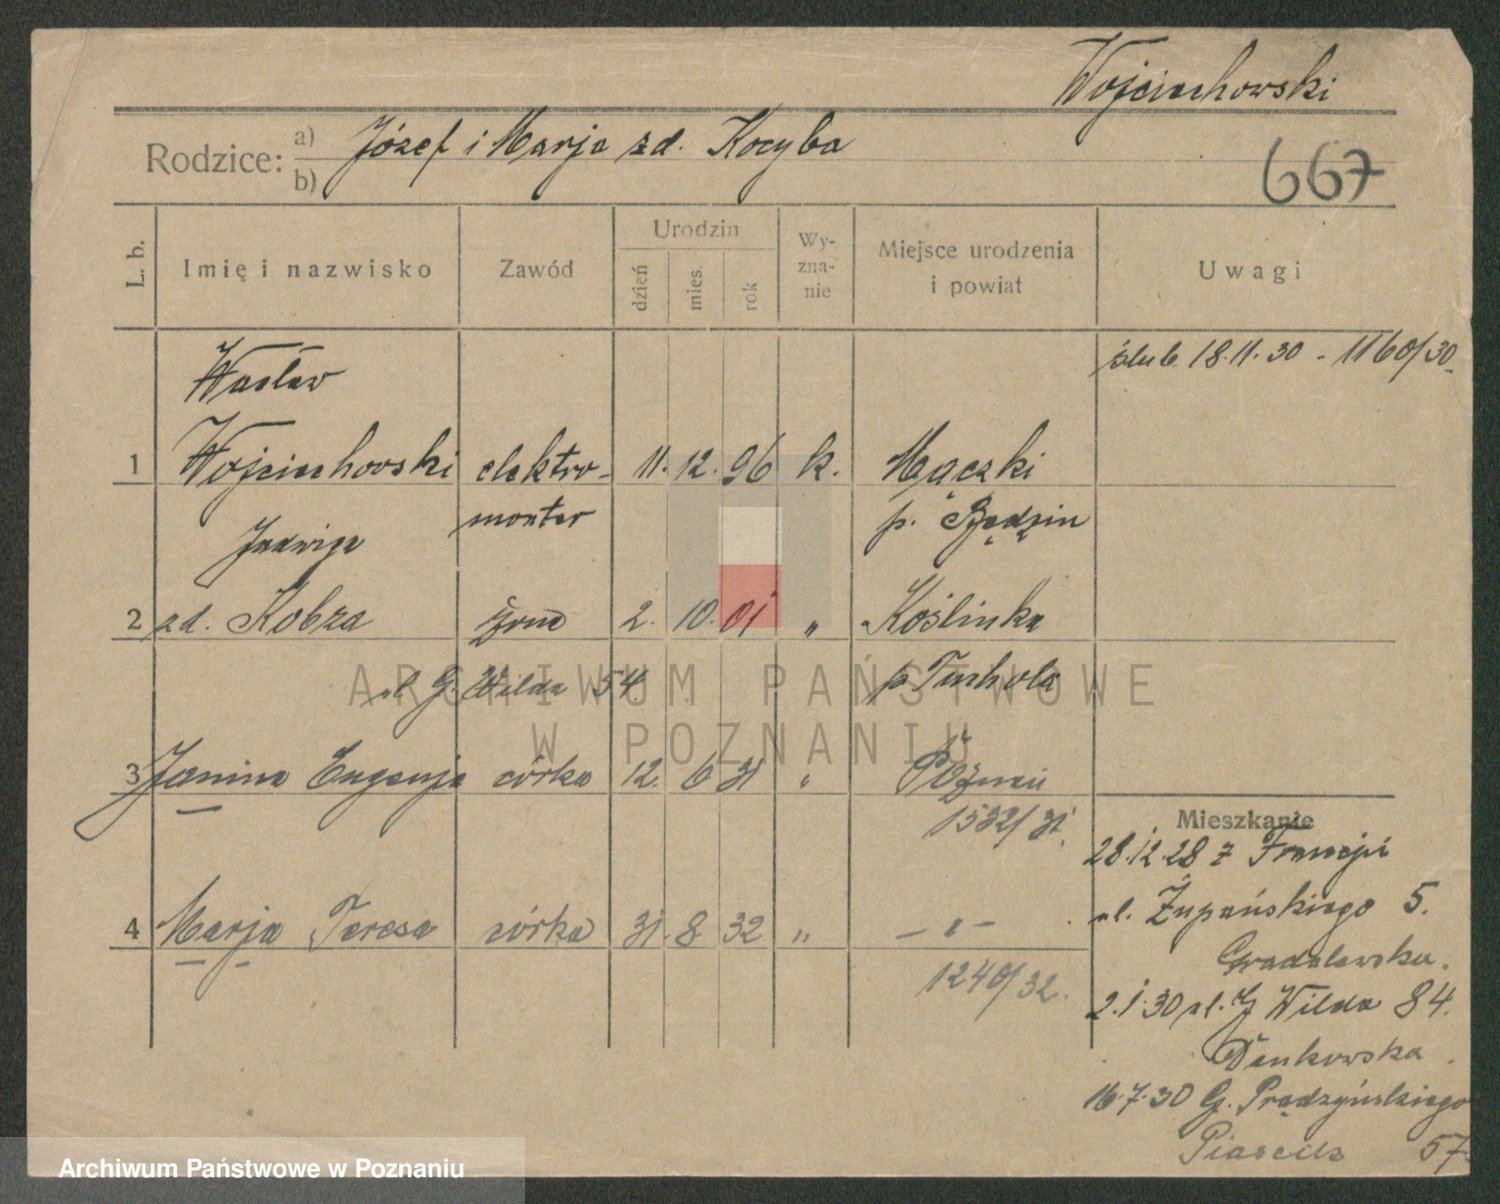 Wojciechowski
Rodzice: a) Józef i Marja zd. Kocyba
b)
667
L. b.
Imię i nazwisko
Zawód
Urodzin
dzień
mies.
rok
Wy-
zna-
nie
Miejsce urodzenia
i powiat
Uwagi
ślub 18.11.30 - 1160/30
Wacław
1 Wojciechowski elektro- 11. 12. 96 k. Mączki
monter p. Będzin
Jadwiga
2 zd. Kobza żona 2. 10. 01 „ Koślinka
ul G. Wilda 54 p Tuchola
3 Janina Eugenja córka 12. 6 31 „ Poznań
1532/31.
4 Marja Teresa córka 31. 8 32 „ - „ -
1240/32.
Mieszkanie
28.12.28 z Francji
ul. Żupańskiego 5.
2.1.30 ul. G Wilda 84.
Denkowska
16.7.30 G. Prądzyńskiego
57
ARCHIWUM PAŃSTWOWE
W POZNANIU
Archiwum Państwowe w Poznaniu